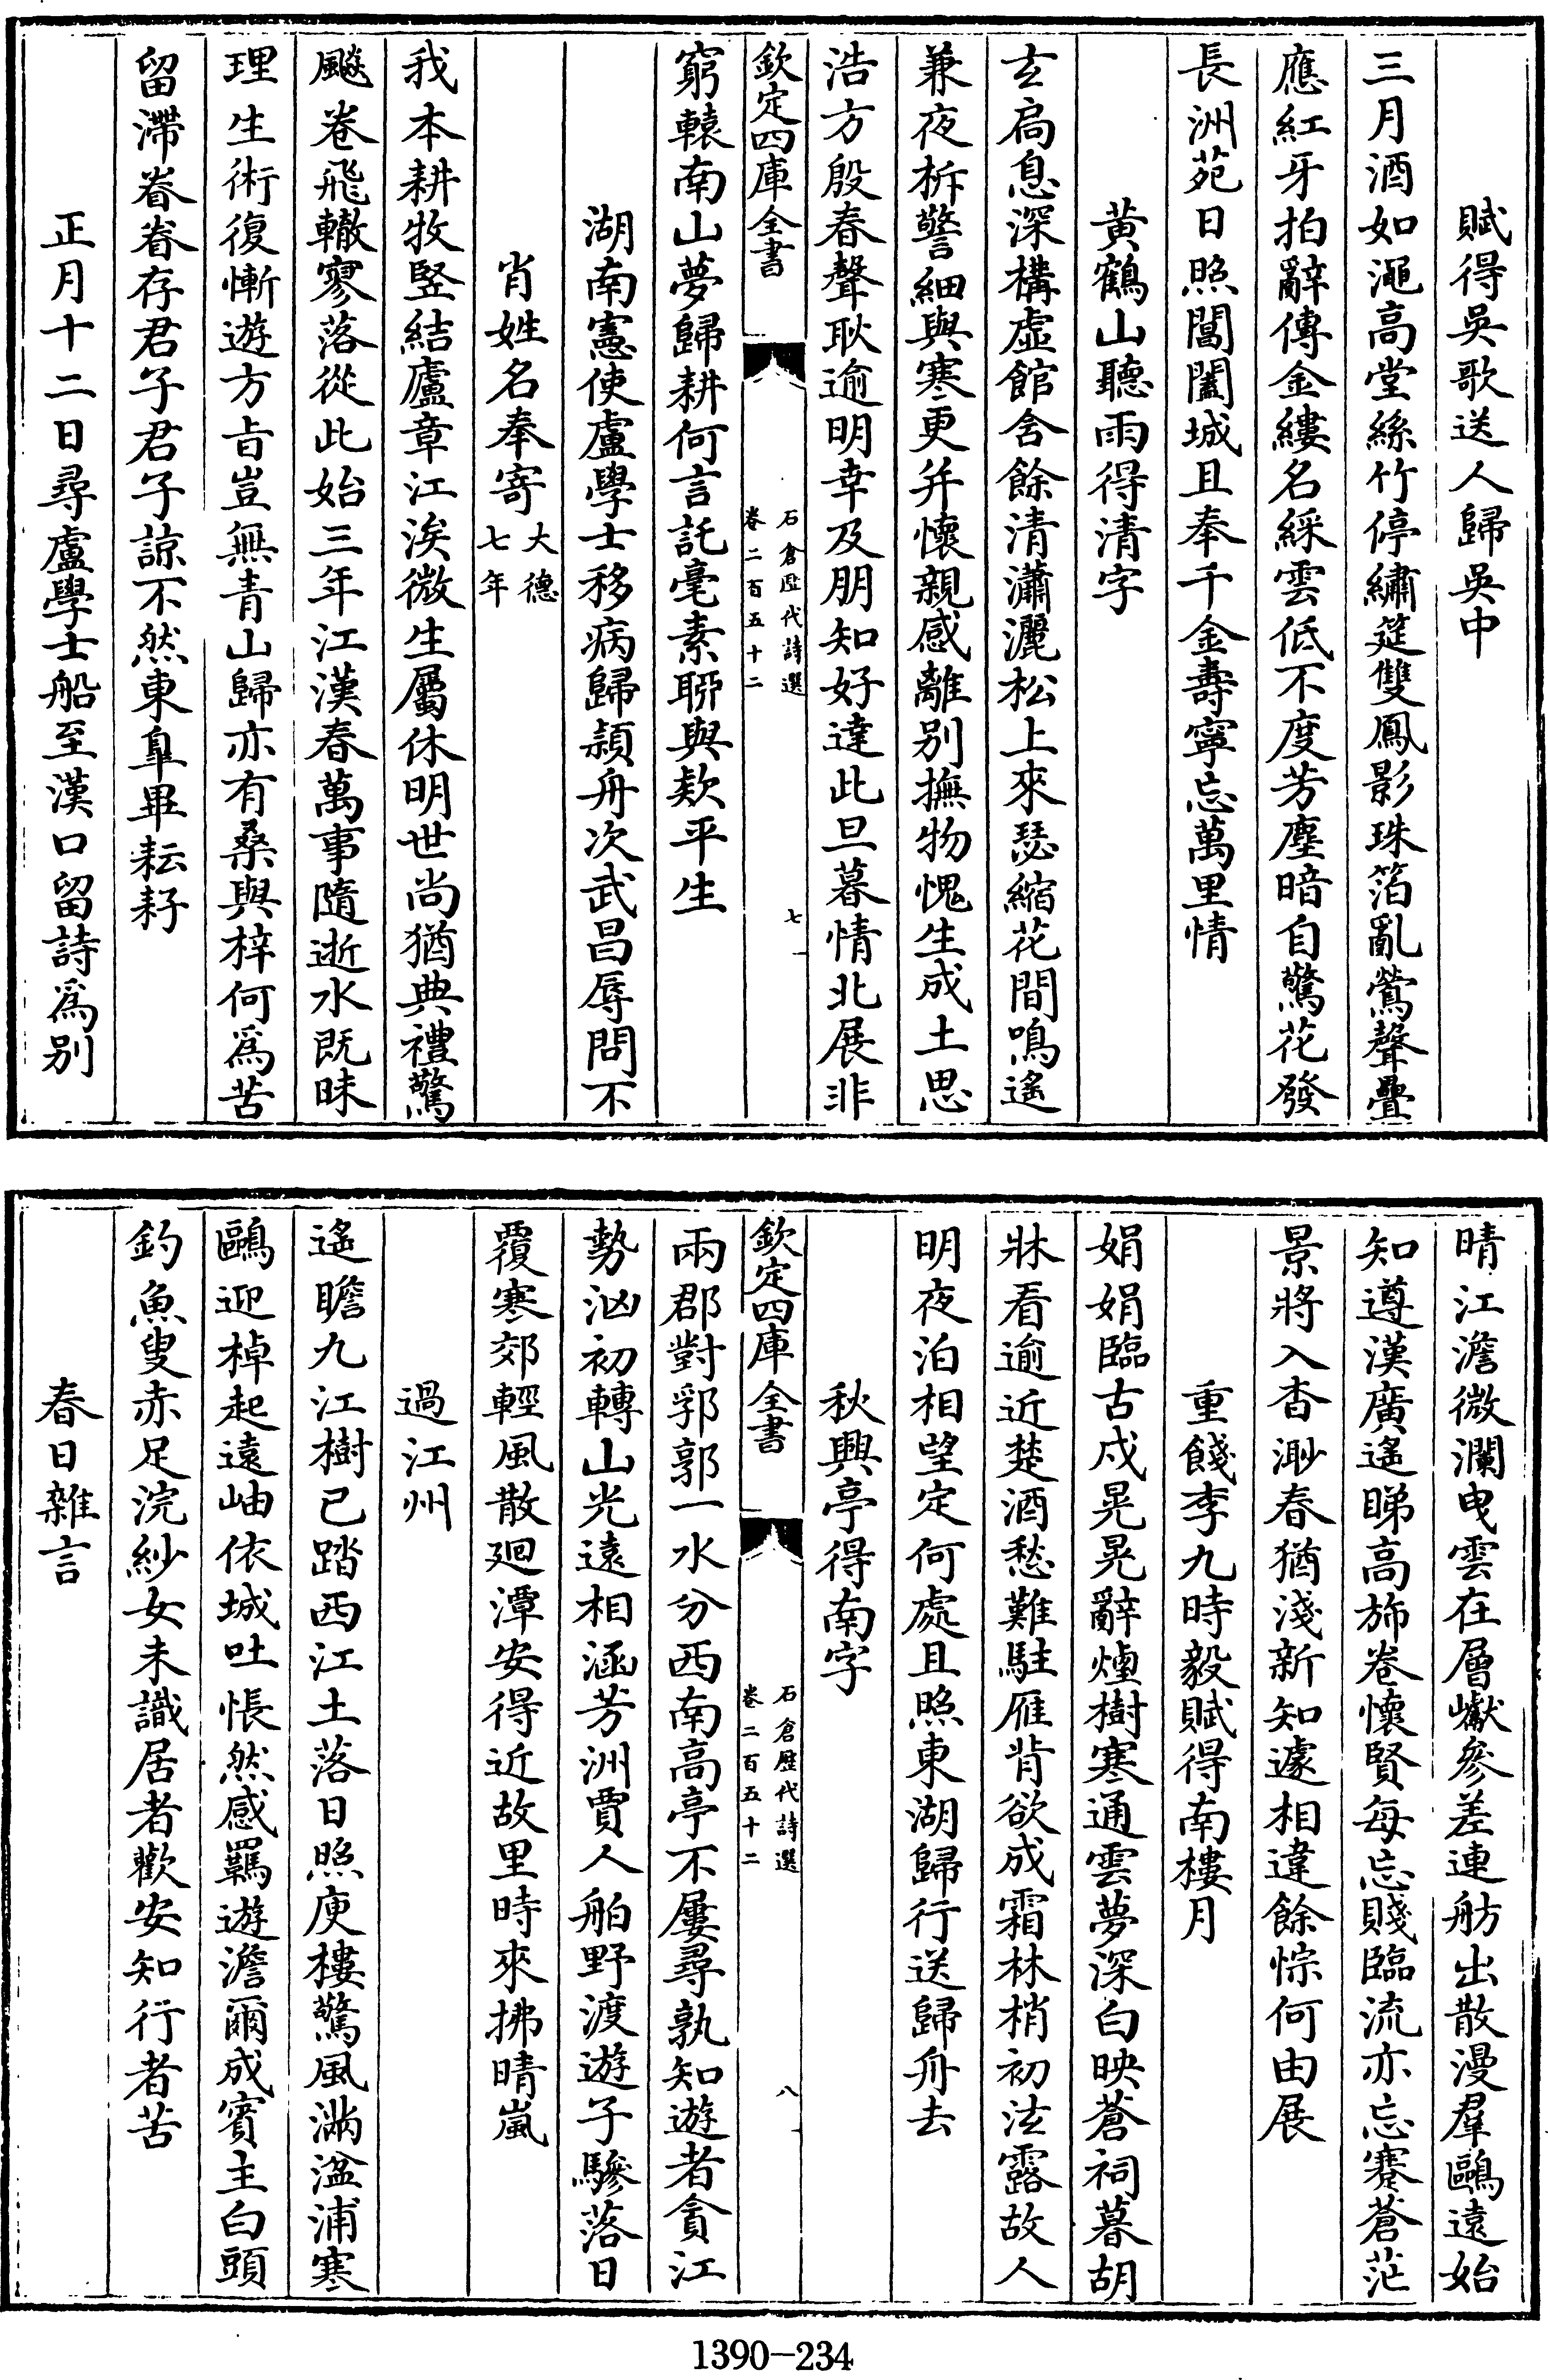 賦得吳歌送人歸吳中
三月酒如澠高堂絲竹停繡筵雙鳳影珠箔亂鶯聲疊
應紅牙拍辭傳金縷名綵雲低不度芳塵暗自驚花發
長洲苑日照閶闔城且奉千金壽寧忘萬里情
黃鶴山聽雨得清字
玄扃息深構虛館含餘清瀟灑松上來瑟縮花間鳴遙
兼夜柝警細與寒更并懷親感離別撫物愧生成土思
浩方殷春聲耿逾明幸及朋知好達此旦暮情北展非
欽定四庫全書
石倉歷代詩選
卷二百五十二
七
窮轅南山夢歸耕何言託毫素聊與欵平生
湖南憲使盧學士移病歸潁舟次武昌辱問不
肖姓名奉寄大德七年
我本耕牧竪結廬章江涘微生屬休明世尚猶典禮驚
飈卷飛轍寥落從此始三年江漢春萬事隨逝水既昧
理生術復慚遊方旨豈無青山歸亦有桑與梓何爲苦
留滯眷眷存君子君子諒不然東臯畢耘耔
正月十二日尋盧學士船至漢口留詩爲別
晴江澹微瀾曳雲在層巘參差連舫出散漫羣鷗遠始
知遵漢廣遙睇高斾卷懷賢每忘賤臨流亦忘蹇蒼茫
景將入杳渺春猶淺新知遽相違餘悰何由展
重餞李九時毅賦得南樓月
娟娟臨古戍晃晃辭煙樹寒通雲夢深白映蒼祠暮胡
牀看逾近楚酒愁難駐雁背欲成霜林梢初泫露故人
明夜泊相望定何處且照東湖歸行送歸舟去
秋興亭得南字
欽定四庫全書
石倉歷代詩選
卷二百五十二
八
兩郡對郛郭一水分西南高亭不屢尋孰知遊者貪江
勢洶初轉山光遠相涵芳洲賈人舶野渡遊子驂落日
覆寒郊輕風散廻潭安得近故里時來拂晴嵐
過江州
遙瞻九江樹已踏西江土落日照庾樓驚風滿湓浦寒
鷗迎棹起遠岫依城吐悵然感羈遊澹爾成賓主白頭
釣魚叟赤足浣紗女未識居者歡安知行者苦
春日雜言
1390-234